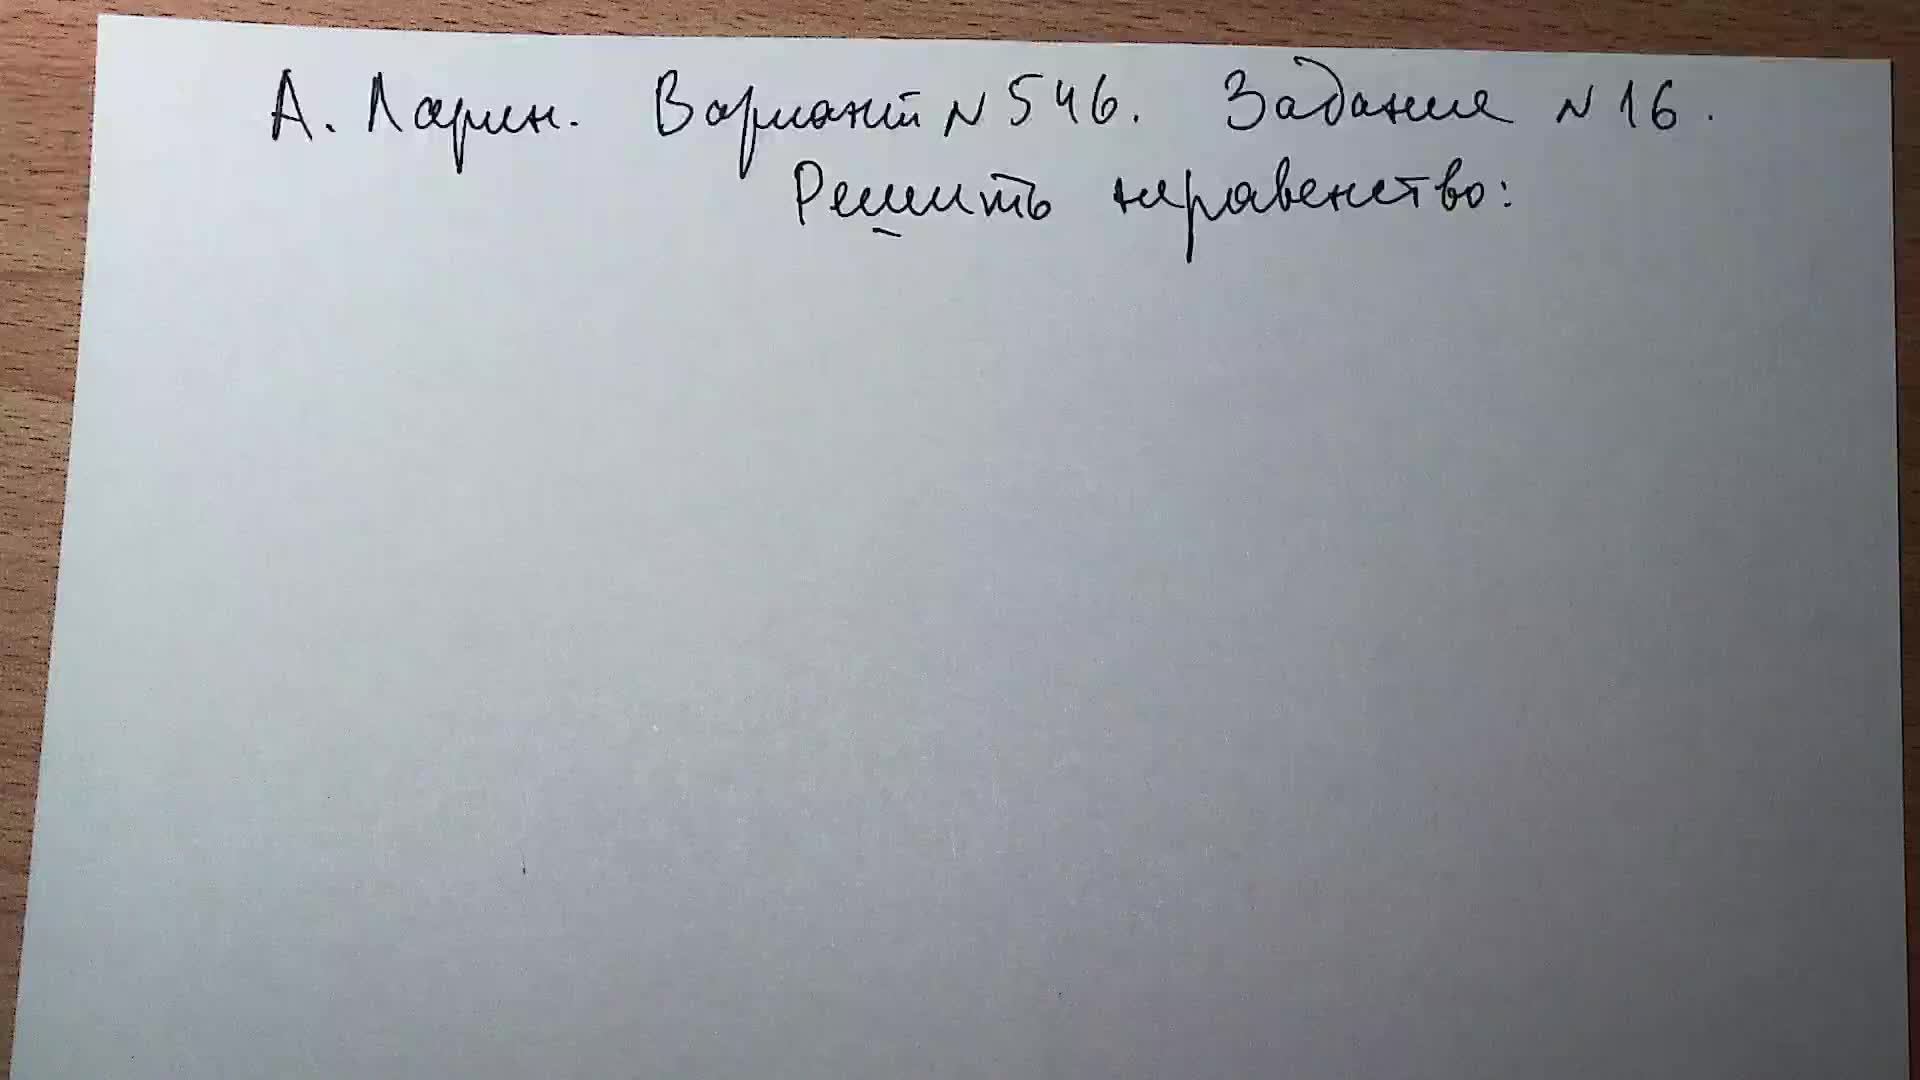 А. Ларин. Вариант N 546. Задание N 16.
Решить неравенство: